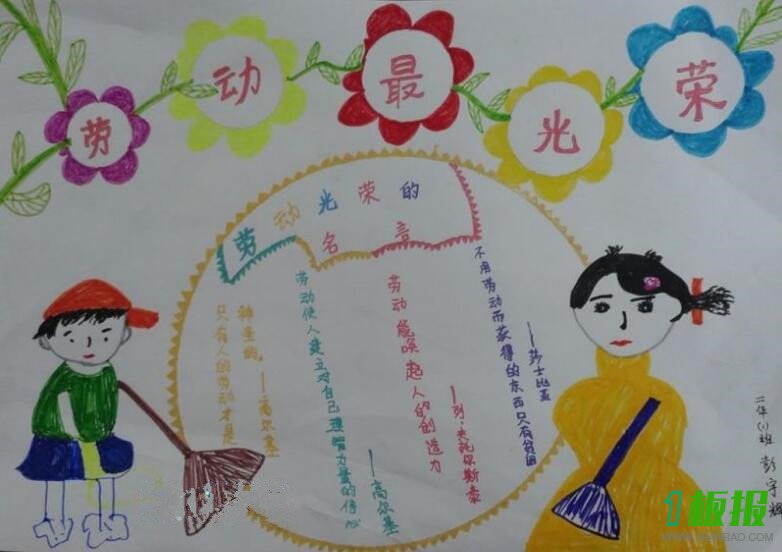 劳动最光荣
劳动光荣的
名言
只有人的劳动才是
神圣的。——高尔基
劳动使人建立对自己理智力量的信心
——高尔基
劳动能唤起人的创造力
——列·夫托尔斯泰
不用劳动而获得的东西只有贫困
——莎士比亚
二年(1)班 彭宇
1板报
WWW.1BANBAO.COM